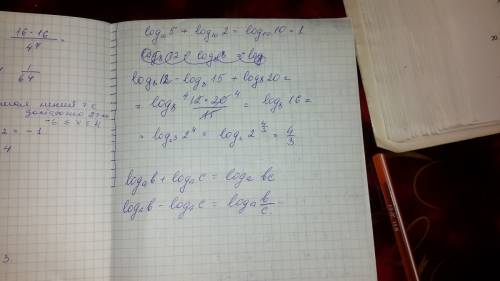 16-16
4⁴ =
1
64
-6 ≤ x ≤ 4
2 = -1
4
3
log₁₀5 + log₁₀2 = log₁₀10 = 1
log₈12 - log₈15 + log₈20 =
= log₈ 12·20 / 15 = log₈16 =
= log₂³ 2⁴ = log₂ 2^(4/3) = 4/3
logₐb + logₐc = logₐ bc
logₐb - logₐc = logₐ b/c